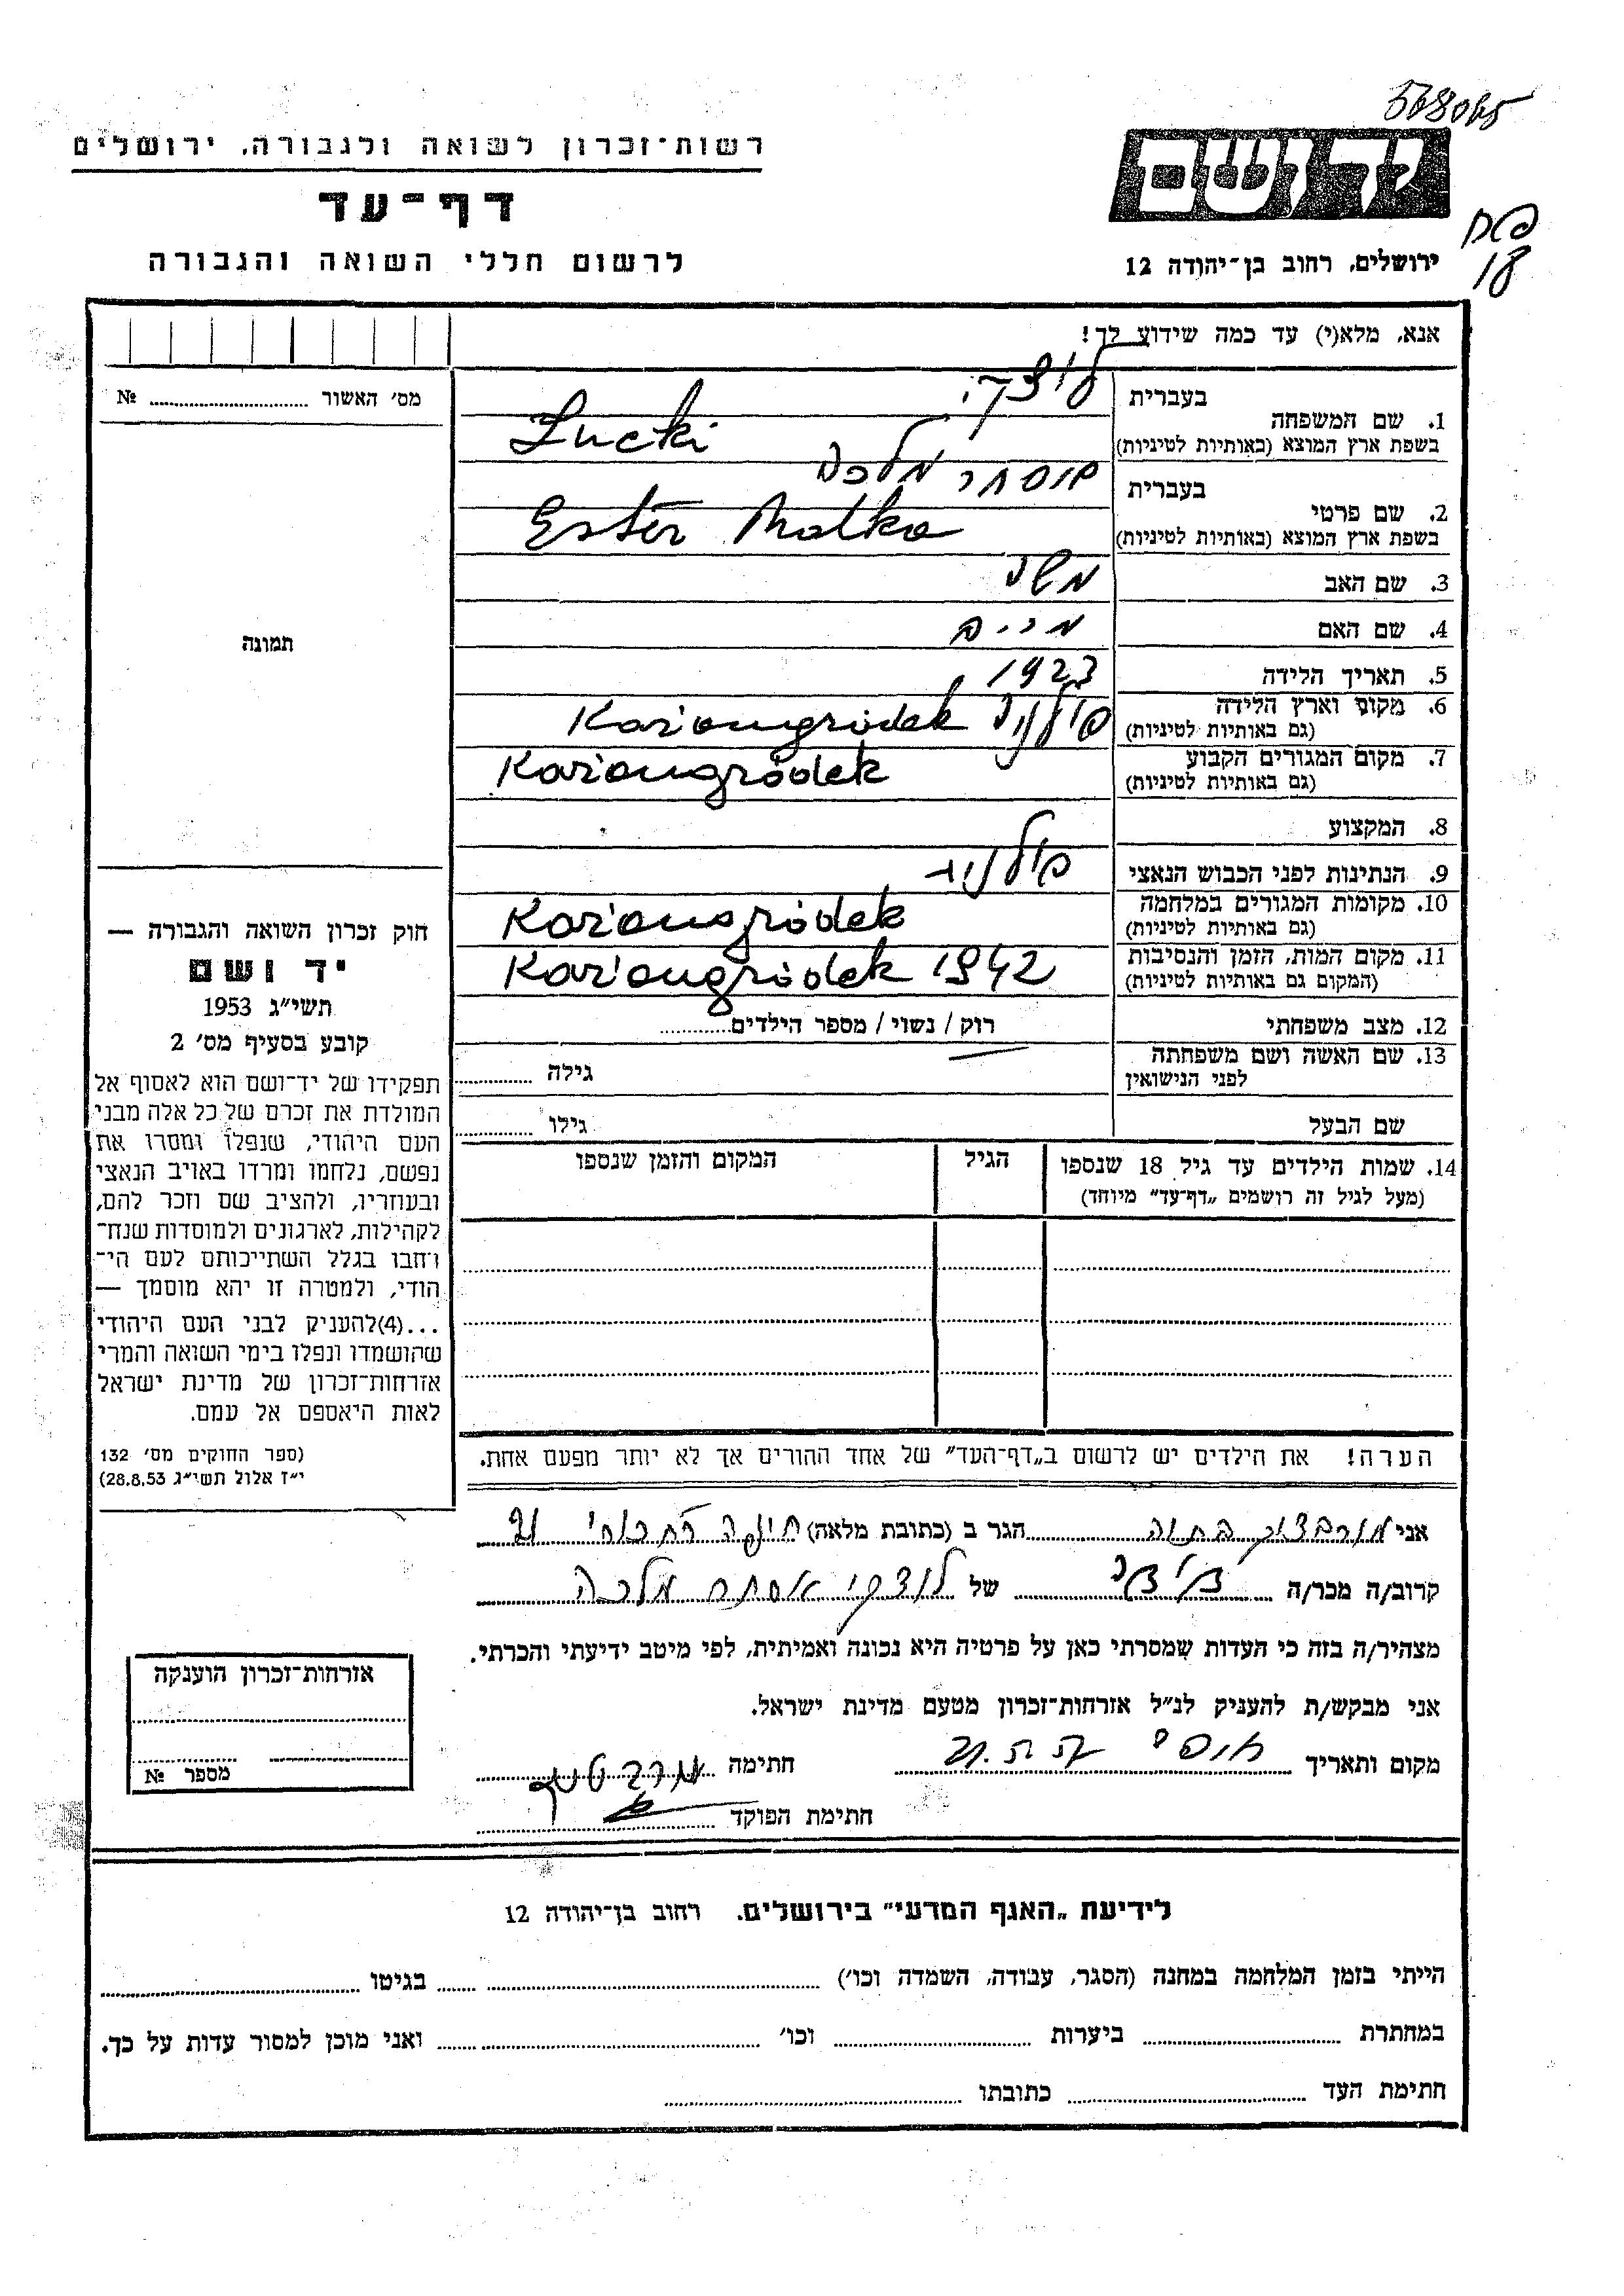 568065
רשות-זכרון לשואה ולגבורה, ירושלים
יד ושם
דף-עד
לרשום חללי השואה והגבורה
ירושלים, רחוב בן-יהודה 12
18
אנא, מלא(י) עד כמה שידוע לך!
מס׳ האשור № 
בעברית
1. שם המשפחה
בשפת ארץ המוצא (באותיות לטיניות) Łucki
בעברית מלכה
2. שם פרטי
בשפת ארץ המוצא (באותיות לטיניות) Ester Malka
3. שם האב משה
4. שם האם מרים
5. תאריך הלידה 1923
6. מקום וארץ הלידה
(גם באותיות לטיניות) פולניה Kożangródek
7. מקום המגורים הקבוע
(גם באותיות לטיניות) Kożangródek
8. המקצוע
9. הנתינות לפני הכבוש הנאצי פולניה
10. מקומות המגורים במלחמה
(גם באותיות לטיניות) Kożangródek
11. מקום המות, הזמן והנסיבות
(המקום גם באותיות לטיניות) Kożangródek 1942
12. מצב משפחתי רוק / נשוי / מספר הילדים
13. שם האשה ושם משפחתה
לפני הנישואין גילה
שם הבעל גילו
14. שמות הילדים עד גיל 18 שנספו
(מעל לגיל זה רושמים „דף-עד״ מיוחד)
הגיל
המקום והזמן שנספו
הערה! את הילדים יש לרשום ב„דף-העד״ של אחד ההורים אך לא יותר מפעם אחת.
תמונה
חוק זכרון השואה והגבורה —
יד ושם
תשי״ג 1953
קובע בסעיף מס׳ 2
תפקידו של יד-ושם הוא לאסוף אל
המולדת את זכרם של כל אלה מבני
העם היהודי, שנפלו ומסרו את
נפשם, נלחמו ומרדו באויב הנאצי
ובעוזריו, ולהציב שם וזכר להם,
לקהילות, לארגונים ולמוסדות שנח-
רחבו בגלל השתייכותם לעם הי-
הודי, ולמטרה זו יהא מוסמך —
...(4)להעניק לבני העם היהודי
שהושמדו ונפלו בימי השואה והמרי
אזרחות-זכרון של מדינת ישראל
לאות היאספם אל עמם.
(ספר החוקים מס׳ 132
י״ז אלול תשי״ג 28.8.53)
אני הגר ב (כתובת מלאה) חיפה
קרוב/ה מכר/ה של לוצקי אסתר מלכה
מצהיר/ה בזה כי העדות שמסרתי כאן על פרטיה היא נכונה ואמיתית, לפי מיטב ידיעתי והכרתי.
אני מבקש/ת להעניק לנ״ל אזרחות-זכרון מטעם מדינת ישראל.
מקום ותאריך חתימה
חתימת הפוקד
אזרחות-זכרון הוענקה
מספר №
לידיעת „האגף המדעי״ בירושלים. רחוב בן-יהודה 12
הייתי בזמן המלחמה במחנה (הסגר, עבודה, השמדה וכו׳) בגיטו
במחתרת ביערות וכו׳ ואני מוכן למסור עדות על כך.
חתימת העד כתובתו